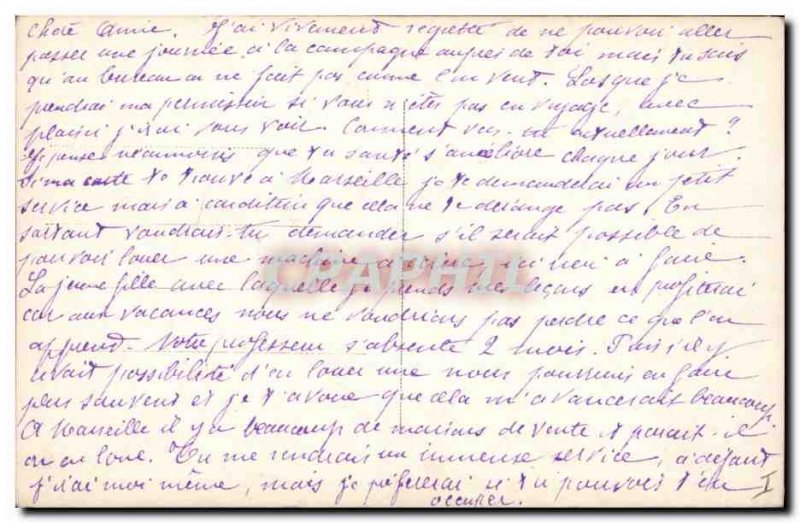 Chère Amie. J'ai vivement regretté de ne pouvoir aller
passer une journée à la campagne auprès de toi, mais tu sais
qu'au bureau on ne fait pas comme l'on veut. Lorsque je
prendrai ma permission si vous n'êtes pas en voyage, avec
plaisir j'irai vous voir. Comment vas-tu actuellement ?
Je pense néanmoins que ta santé s'améliore chaque jour.
Si ma carte te trouve à Marseille je te demanderai un petit
service mais à condition que cela ne te dérange pas. En
sortant voudrais-tu demander s'il serait possible de
pouvoir louer une machine à écrire
La jeune fille avec laquelle je prends mes leçons en profiterai
car aux vacances nous ne voudrions pas perdre ce que l'on
apprend. Notre professeur s'absente 2 mois. Puis s'il y
avait possibilité d'en louer une nous pourrions en faire
plus souvent et je t'avoue que cela m'avancerait beaucoup.
A Marseille il y a beaucoup de maisons de vente et parait-il
on en loue. Tu me rendrais un immense service, à défaut
j'irai moi même, mais je préfèrerai si tu pouvais t'en
occuper.
I
CPAPHIL